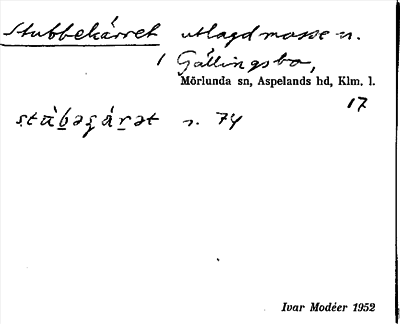 Stubbekärret utlagd mosse n.
1 Gällingsbo,
Mörlunda sn, Aspelands hd, Klm. l.
17
n. 74
Ivar Modéer 1952